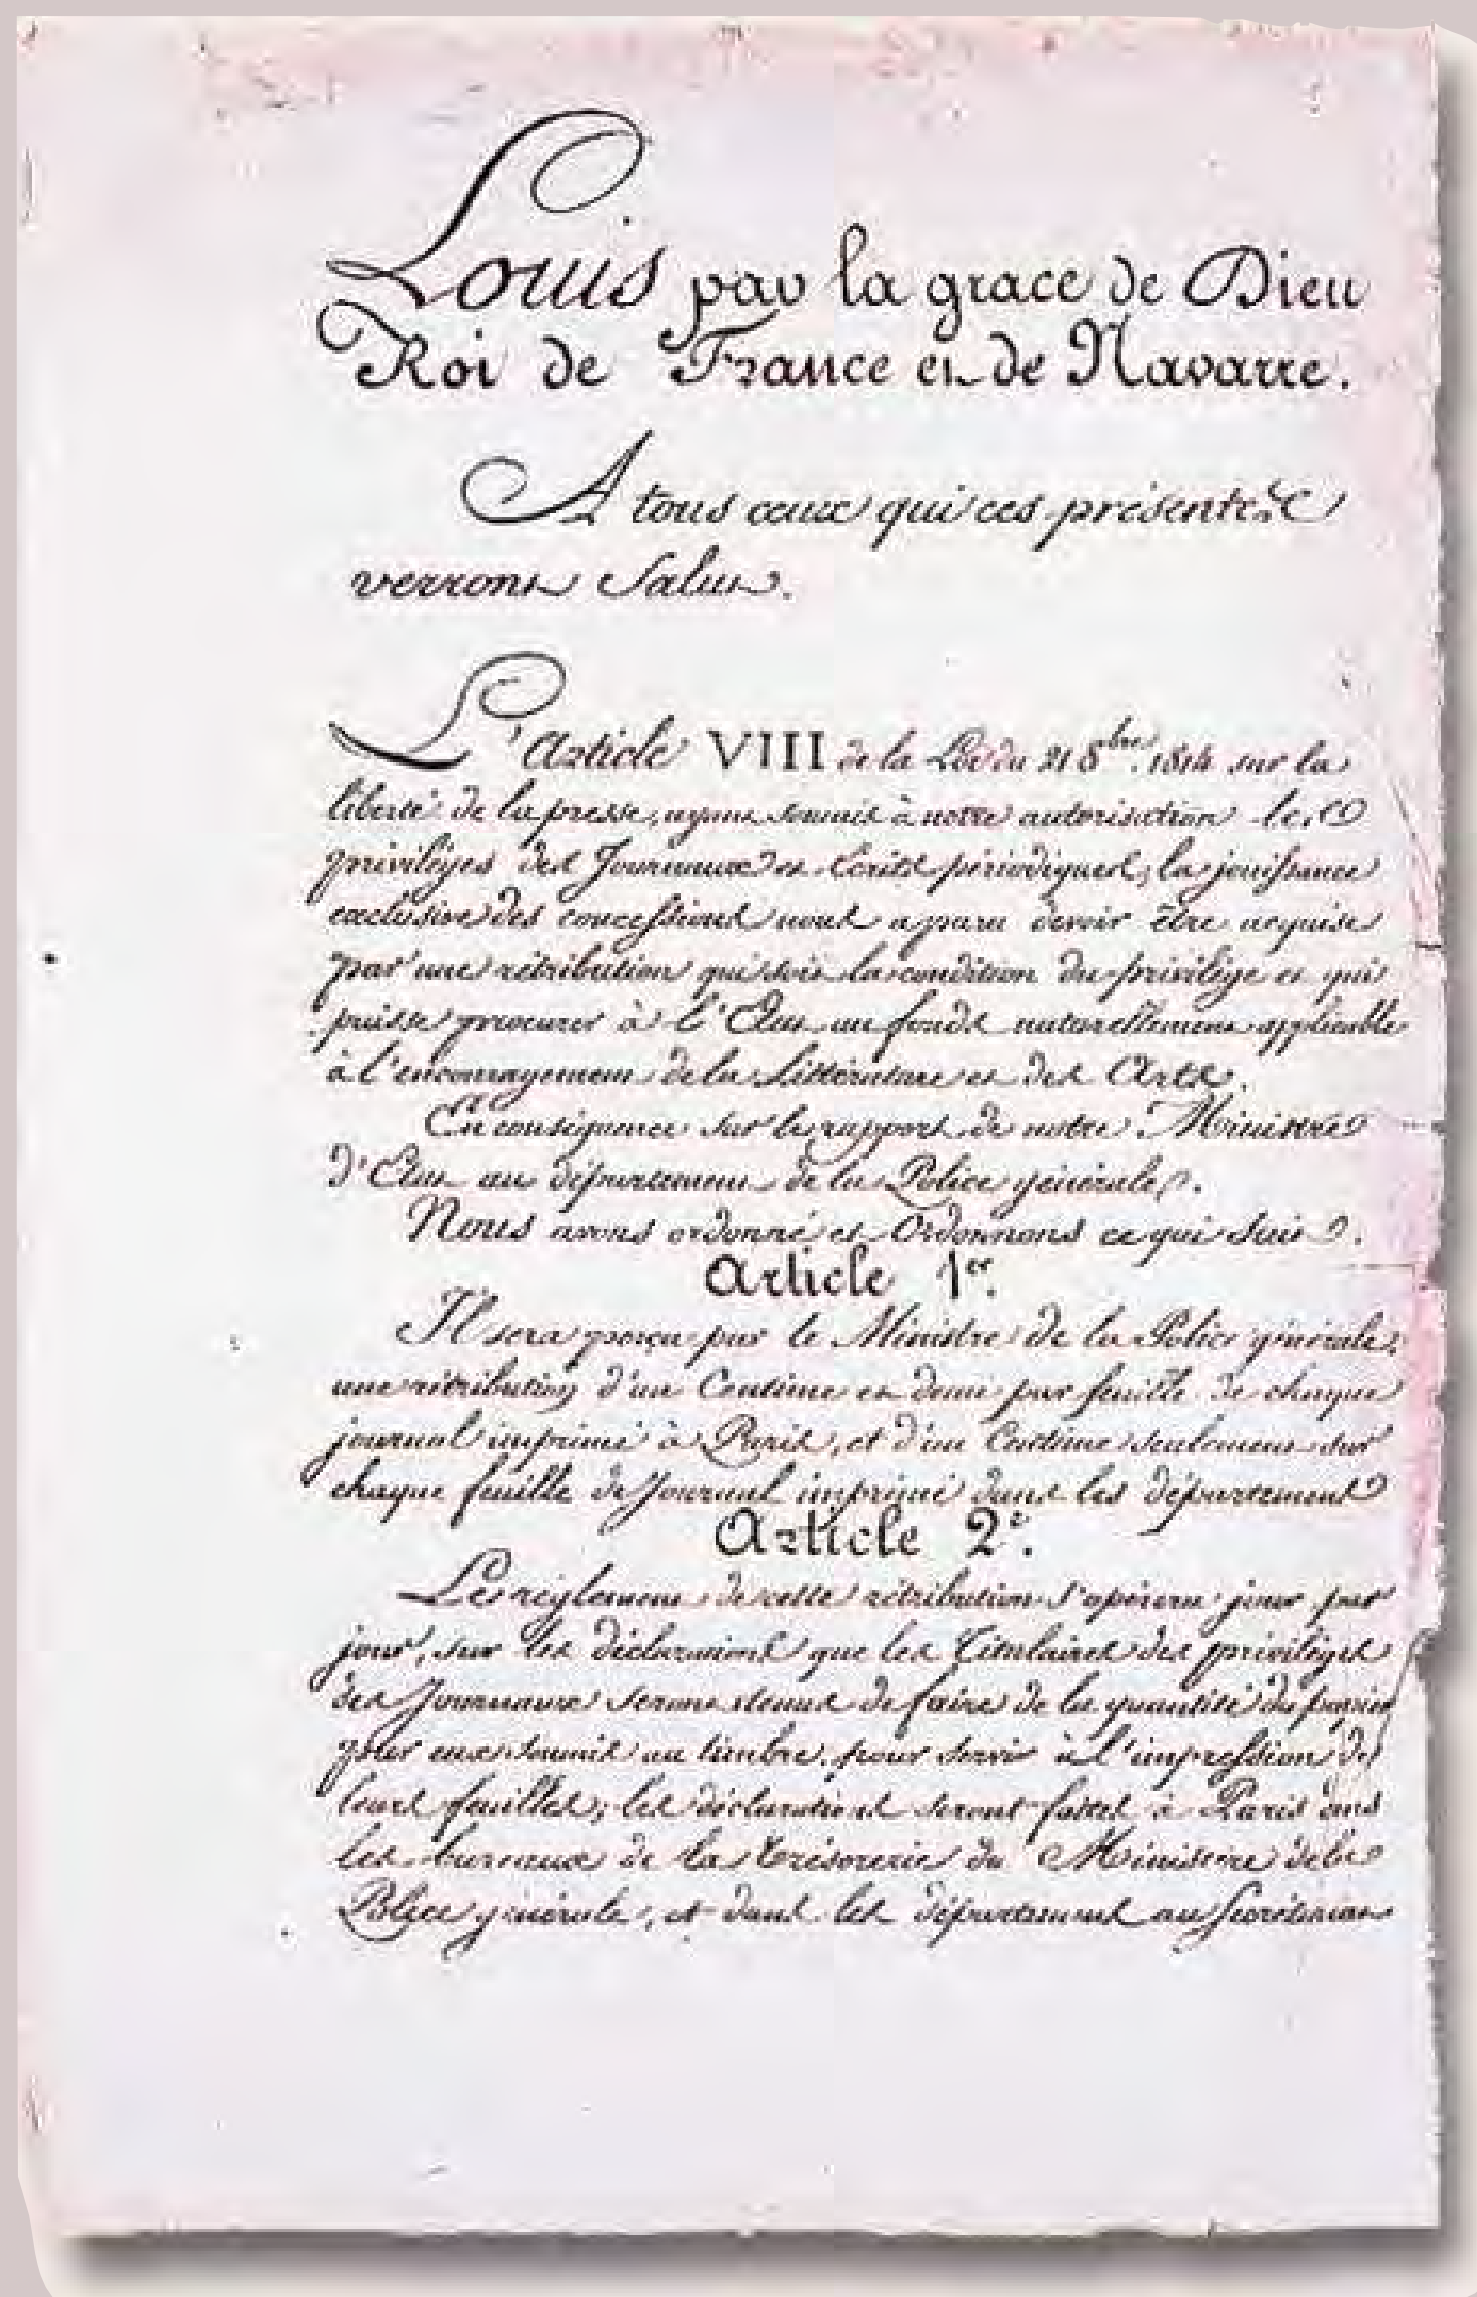 Louis par la grace de Dieu
Roi de France et de Navarre.
A tous ceux qui ces présentes
verront Salut.
L'Article VIII de la Loi du 21 8bre. 1814 sur la
liberté de la presse, ayant soumis à notre autorisation les
privilèges des Journaux et Ecrits périodiques, la jouissance
exclusive des concessions nous a paru devoir être acquise
par une rétribution qui soit la condition du privilège et qui
puisse procurer à l'Etat un fonds naturellement applicable
à l'encouragement de la Littérature et des Arts.
En conséquence sur le rapport de notre Ministre
d'Etat au département de la Police générale.
Nous avons ordonné et Ordonnons ce qui suit.
Article 1er.
Il sera perçu par le Ministre de la Police générale,
une rétribution d'un Centime et demi par feuille de chaque
journal imprimé à Paris, et d'un Centime seulement sur
chaque feuille de Journal imprimé dans les départemens
Article 2e.
Le réglement de cette rétribution s'opérera jour par
jour, sur les déclarations que les Titulaires des privilèges
des Journaux seront tenus de faire de la quantité du papier
par eux soumis au timbre, pour servir à l'impression de
leurs feuilles; les déclarations seront faites à Paris dans
les bureaux de la Trésorerie du Ministère de la
Police générale, et dans les départemens au Secrétariat